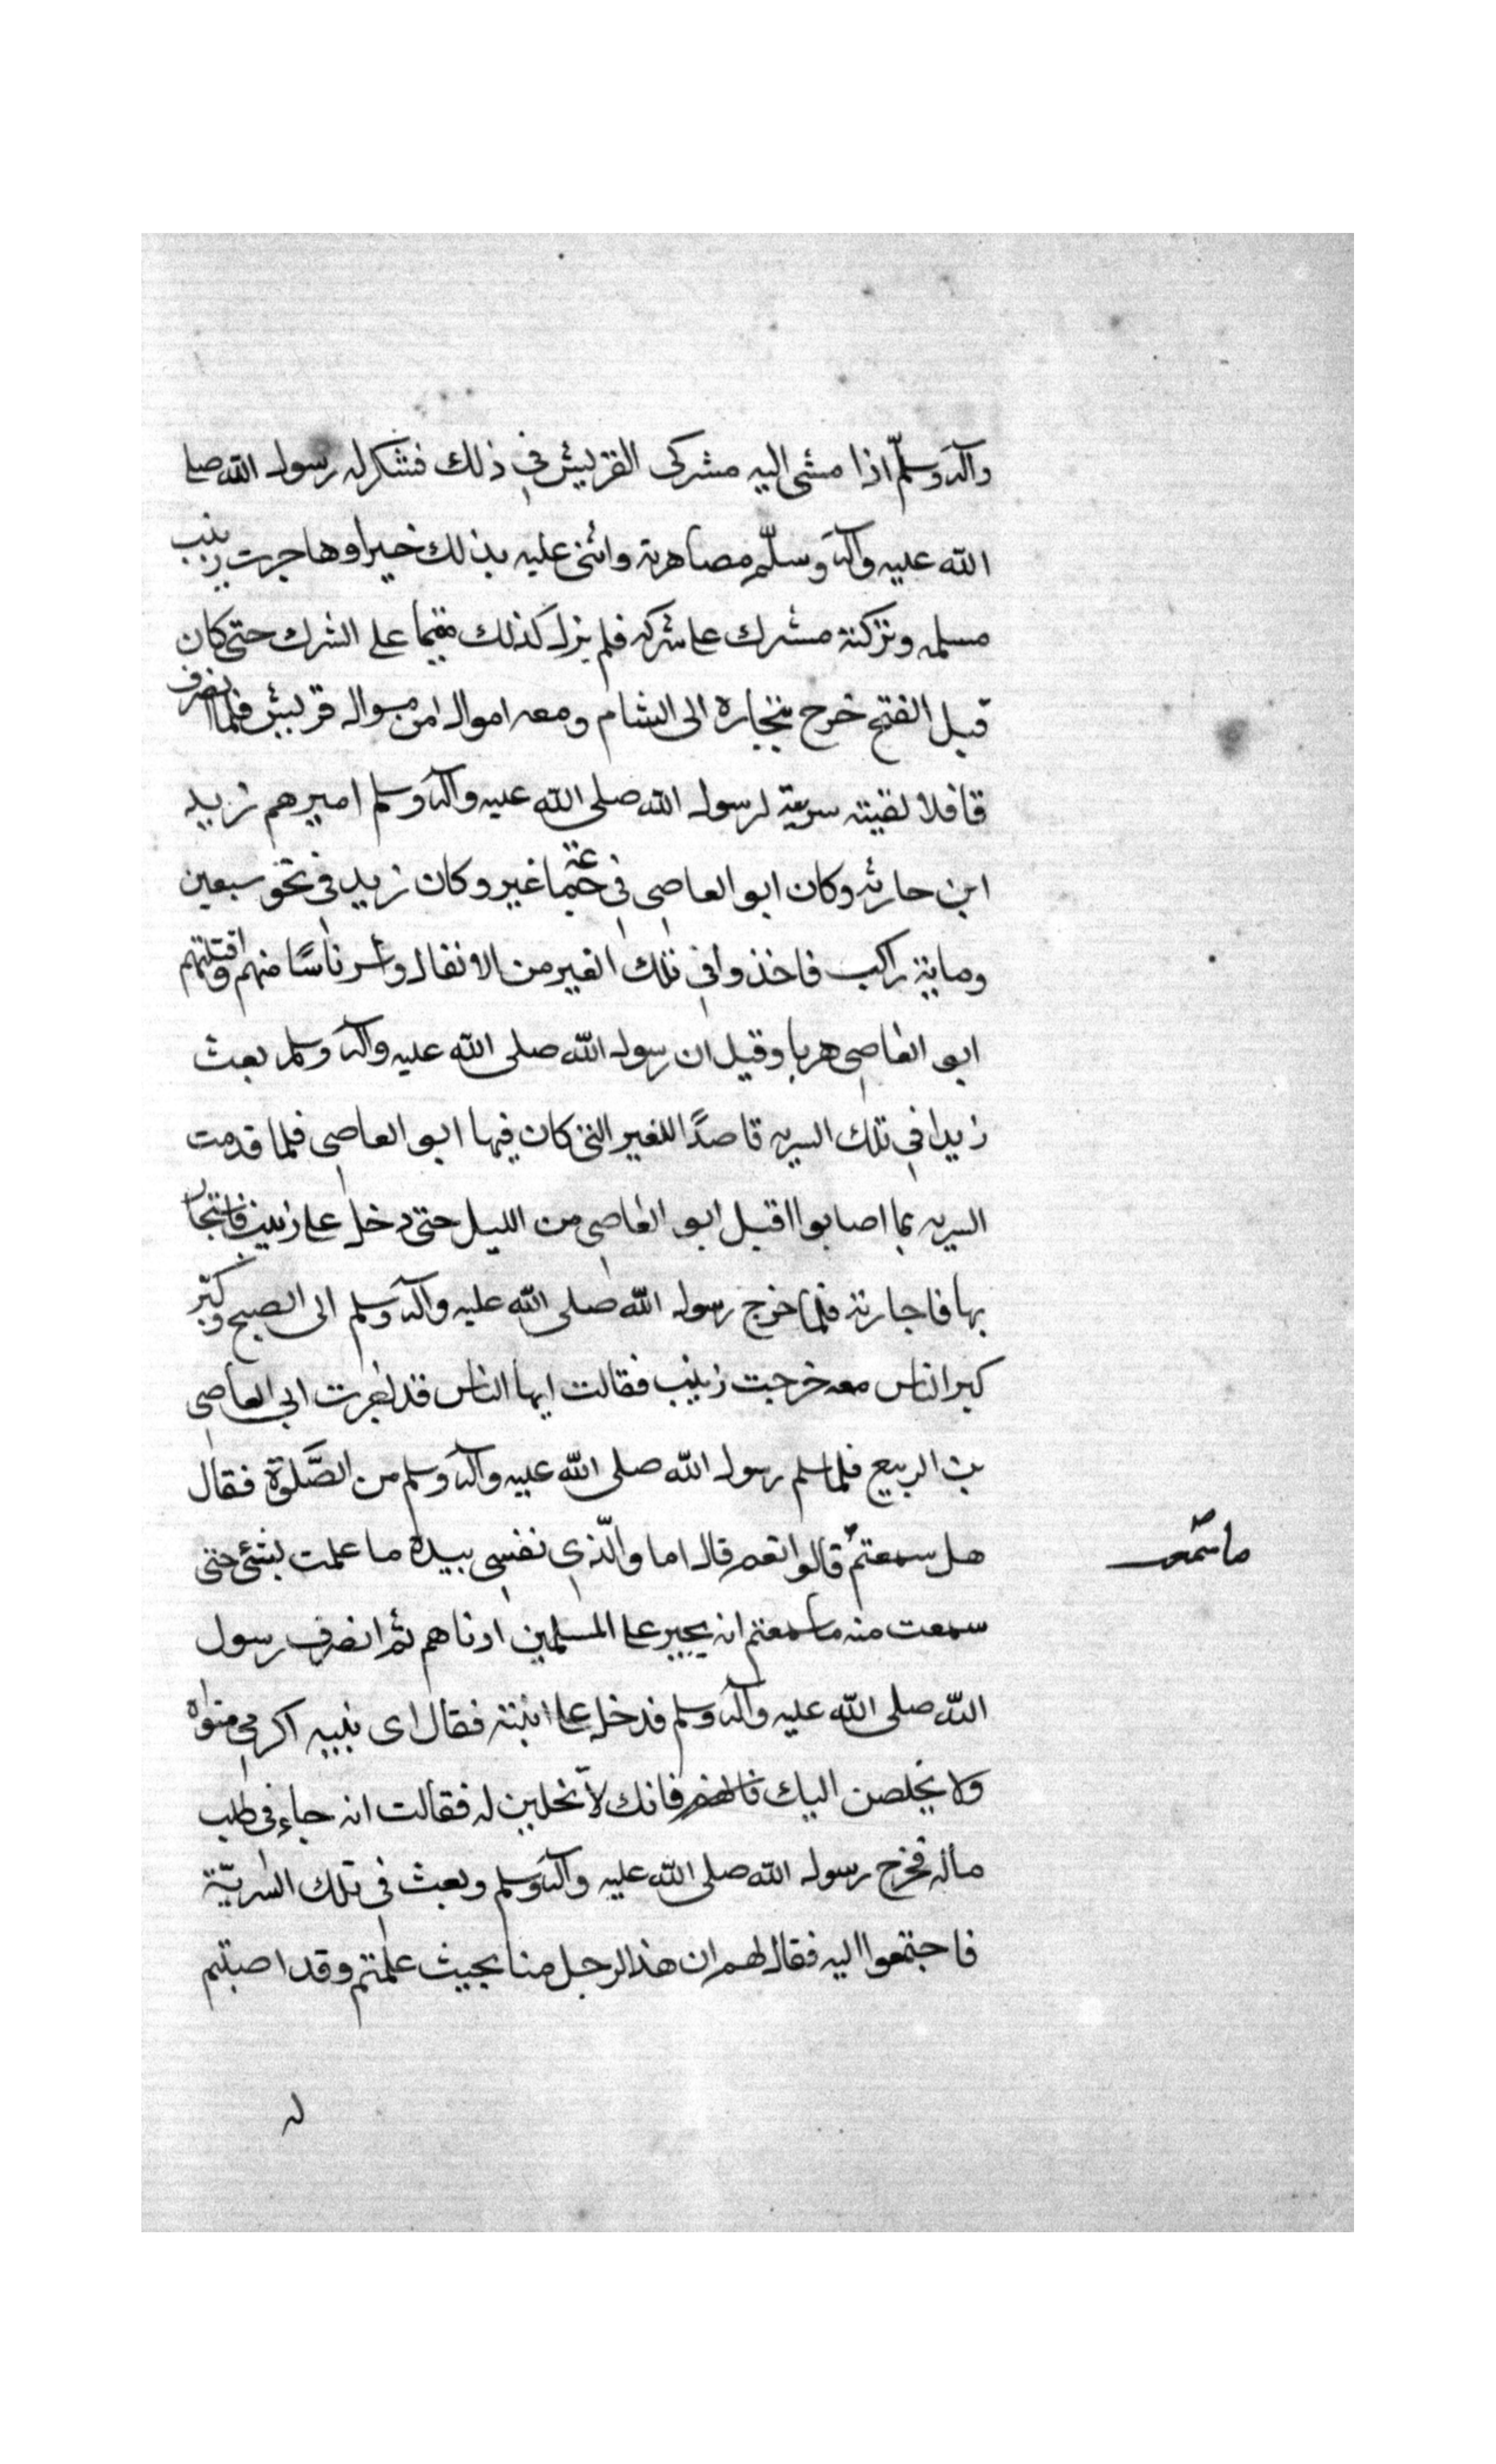 وآله وسلّم اذا مشى اليه مشركى القريش في ذلك فشكر له رسول الله صلى
الله عليه وآله وسلّم مصاهرته واثنى عليه بذلك خيرا وهاجرت زينب
مسلمه وتركته مشرك على شركه فلم يزل كذلك مقيما على الشرك حتى كان
قبل الفتح خرج بتجارة الى الشام ومعه اموال من اموال قريش فلما انصرف
قافلا لقيته سرية لرسول الله صلى الله عليه وآله وسلم اميرهم زيد
ابن حارثه وكان ابو العاصى في جماعة غير وكان زيد في نحو سبعين
ومائة راكب فاخذوا في تلك العير من الانفال وأسر ناسًا منهم
ابو العاصى هربا وقيل ان رسول الله صلى الله عليه وآله وسلم بعث
زيدا في تلك السريه قاصدًا للعير التى كان فيها ابو العاصى فلما قدمت
السريه بما اصابوا اقبل ابو العاصى من الليل حتى دخل على زينب فاستجار
بها فاجارته فلما خرج رسول الله صلى الله عليه وآله وسلم الى الصبح وكبّر
كبر الناس معه خرجت زينب فقالت ايها الناس قد اجرت ابى العاصى
بن الربيع فلما سلم رسول الله صلى الله عليه وآله وسلم من الصَّلوة فقال
هل سمعتم قالوا نعم قال اما والّذى نفسى بيده ما علمت بشئ حتى
ما سمعت
سمعت منه ما سمعتم انه يجير على المسلمين ادناهم ثم انصرف رسول
الله صلى الله عليه وآله وسلم فدخل على ابنته فقال اى بنيه اكرمي مثواه
ولا يخلصن اليك فانك لا تحلين له فقالت انه جاء في طلب
ماله فخرج رسول الله صلى الله عليه وآله وسلم وبعث في تلك السّريّة
فاجتمعوا اليه فقال لهم ان هذا الرجل منا بحيث علمتم وقد اصبتم
له